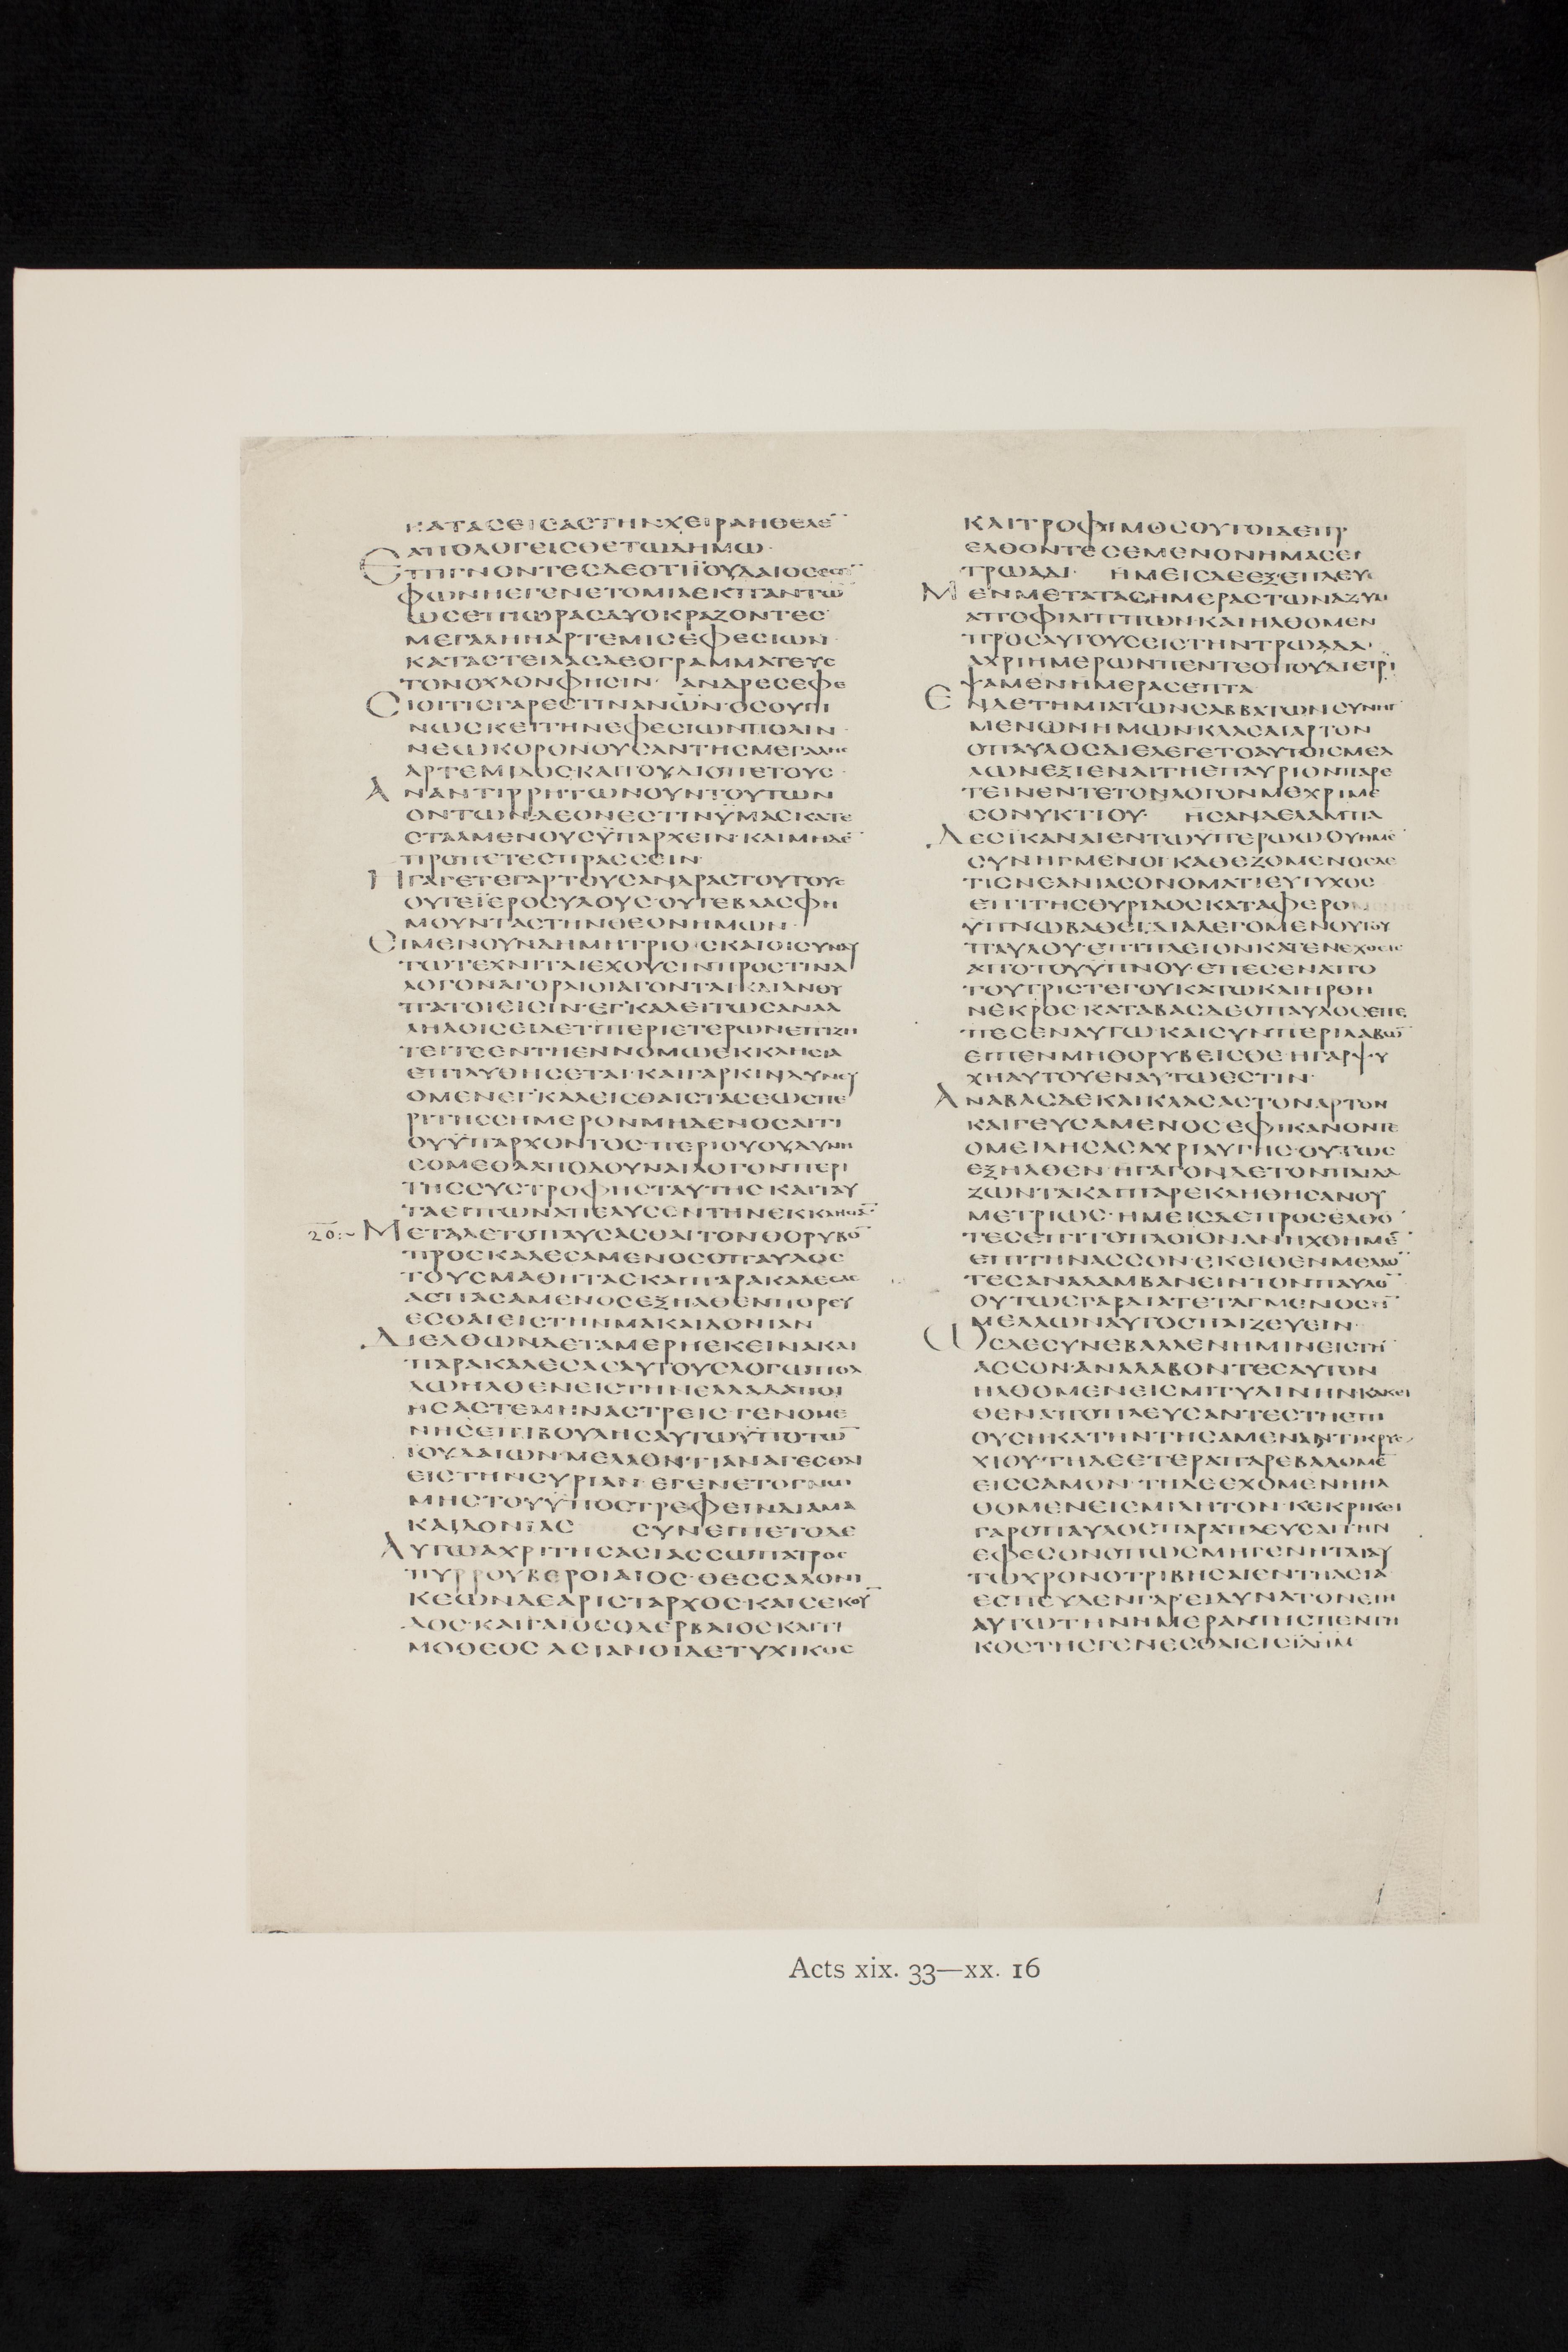 ΚΑΤΑϹΕΙϹΑϹΤΗΝΧΕΙΡΑΗΘΕΛΕ̅
ΑΠΟΛΟΓΕΙϹΘΕΤΩΔΗΜΩ·
ΕΠΙΓΝΟΝΤΕϹΔΕΟΤΙΪΟΥΔΑΙΟϹΕϹΤΙ̅
ΦΩΝΗΕΓΕΝΕΤΟΜΙΑΕΚΠΑΝΤΩ̅
ΩϹΕΠΙΩΡΑϹΔΥΟΚΡΑΖΟΝΤΕϹ
ΜΕΓΑΛΗΗΑΡΤΕΜΙϹΕΦΕϹΙΩΝ·
ΚΑΤΑϹΤΕΙΛΑϹΔΕΟΓΡΑΜΜΑΤΕΥϹ
ΤΟΝΟΧΛΟΝΦΗϹΙΝ· ΑΝΔΡΕϹΕΦΕ
ϹΙΟΙΤΙϹΓΑΡΕϹΤΙΝΑΝ̅Ω̅Ν̅·ΟϹΟΥΓΙ
ΝΩϹΚΕΙΤΗΝΕΦΕϹΙΩΝΠΟΛΙΝ·
ΝΕΩΚΟΡΟΝΟΥϹΑΝΤΗϹΜΕΓΑΛΗϹ
ΑΡΤΕΜΙΔΟϹ·ΚΑΙΤΟΥΔΙΟΠΕΤΟΥϹ·
ΑΝΑΝΤΙΡΡΗΤΩΝΟΥΝΤΟΥΤΩΝ
ΟΝΤΩΝ·ΔΕΟΝΕϹΤΙΝΫΜΑϹΚΑΤΕ
ϹΤΑΛΜΕΝΟΥϹΫΠΑΡΧΕΙΝ·ΚΑΙΜΗΔΕ̅
ΠΡΟΠΕΤΕϹΠΡΑϹϹΕΙΝ·
ΗΓΑΓΕΤΕΓΑΡΤΟΥϹΑΝΔΡΑϹΤΟΥΤΟΥϹ
ΟΥΤΕΪΕΡΟϹΥΛΟΥϹ·ΟΥΤΕΒΛΑϹΦΗ
ΜΟΥΝΤΑϹΤΗΝΘΕΟΝΗΜΩΝ·
ΕΙΜΕΝΟΥΝΔΗΜΗΤΡΙΟϹΚΑΙΟΙϹΥΝΑΥ
ΤΩΤΕΧΝΙΤΑΙΕΧΟΥϹΙΝΠΡΟϹΤΙΝΑ
ΛΟΓΟΝΑΓΟΡΑΙΟΙΑΓΟΝΤΑΙ·ΚΑΙΑΝΘΥ
ΠΑΤΟΙΕΙϹΙΝ·ΕΓΚΑΛΕΙΤΩϹΑΝΑΛ
ΛΗΛΟΙϹΕΙΔΕΤΙΠΕΡΙΕΤΕΡΩΝΕΠΙΖΗ
ΤΕΙΤΕΕΝΤΗΕΝΝΟΜΩΕΚΚΛΗϹΙΑ
ΕΠΙΛΥΘΗϹΕΤΑΙ·ΚΑΙΓΑΡΚΙΝΔΥΝΕΥ
ΟΜΕΝΕΓΚΑΛΕΙϹΘΑΙϹΤΑϹΕΩϹΠΕ
ΡΙΤΗϹϹΗΜΕΡΟΝΜΗΔΕΝΟϹΑΙΤΙ
ΟΥΫΠΑΡΧΟΝΤΟϹ·ΠΕΡΙΟΥΟΥΔΥΝΗ
ϹΟΜΕΘΑΑΠΟΔΟΥΝΑΙΛΟΓΟΝΠΕΡΙ
ΤΗϹϹΥϹΤΡΟΦΗϹΤΑΥΤΗϹ·ΚΑΙΤΑΥ
ΤΑΕΙΠΩΝΑΠΕΛΥϹΕΝΤΗΝΕΚΚΛΗϹΙΑ̅·
20:~ ΜΕΤΑΔΕΤΟΠΑΥϹΑϹΘΑΙΤΟΝΘΟΡΥΒΟ̅
ΠΡΟϹΚΑΛΕϹΑΜΕΝΟϹΟΠΑΥΛΟϹ
ΤΟΥϹΜΑΘΗΤΑϹΚΑΙΠΑΡΑΚΑΛΕϹΑϹ
ΑϹΠΑϹΑΜΕΝΟϹΕΞΗΛΘΕΝΠΟΡΕΥ
ΕϹΘΑΙΕΙϹΤΗΝΜΑΚΑΙΔΟΝΙΑΝ
ΔΙΕΛΘΩΝΔΕΤΑΜΕΡΗΕΚΕΙΝΑΚΑΙ
ΠΑΡΑΚΑΛΕϹΑϹΑΥΤΟΥϹΛΟΓΩΠΟΛ
ΛΩΗΛΘΕΝΕΙϹΤΗΝΕΛΛΑΔΑΠΟΙ
ΗϹΑϹΤΕΜΗΝΑϹΤΡΕΙϹ·ΓΕΝΟΜΕ
ΝΗϹΕΠΙΒΟΥΛΗϹΑΥΤΩΫΠΟΤΩ̅
ΙΟΥΔΑΙΩΝ·ΜΕΛΛΟΝΤΙΑΝΑΓΕϹΘΑΙ
ΕΙϹΤΗΝϹΥΡΙΑΝ·ΕΓΕΝΕΤΟΓΝΩ
ΜΗϹΤΟΥΫΠΟϹΤΡΕΦΕΙΝΔΙΑΜΑ
ΚΑΙΔΟΝΙΑϹ ϹΥΝΕΙΠΕΤΟΔΕ
ΑΥΤΩΑΧΡΙΤΗϹΑϹΙΑϹϹΩΠΑΤΡΟϹ
ΠΥΡΡΟΥΒΕΡΟΙΑΙΟϹ·ΘΕϹϹΑΛΟΝΙ
ΚΕΩΝΔΕΑΡΙϹΤΑΡΧΟϹ·ΚΑΙϹΕΚΟΥ̅
ΔΟϹ·ΚΑΙΓΑΙΟϹΟΔΕΡΒΑΙΟϹΚΑΙΤΙ
ΜΟΘΕΟϹ ΑϹΙΑΝΟΙΔΕΤΥΧΙΚΟϹ
ΚΑΙΤΡΟΦΙΜΟϹΟΥΤΟΙΔΕΠΡ
ΕΛΘΟΝΤΕϹΕΜΕΝΟΝΗΜΑϹΕΙ
ΤΡΩΑΔΙ· ΗΜΕΙϹΔΕΕΞΕΠΛΕΥϹ
ΜΕΝΜΕΤΑΤΑϹΗΜΕΡΑϹΤΩΝΑΖΥΜ
ΑΠΟΦΙΛΙΠΠΩΝ·ΚΑΙΗΛΘΟΜΕΝ
ΠΡΟϹΑΥΤΟΥϹΕΙϹΤΗΝΤΡΩΑΔΑ·
ΑΧΡΙΗΜΕΡΩΝΠΕΝΤΕΟΠΟΥΔΙΕΤΡΙ
ΨΑΜΕΝΗΜΕΡΑϹΕΠΤΑ
ΕΝΔΕΤΗΜΙΑΤΩΝϹΑΒΒΑΤΩΝϹΥΝΗΓ
ΜΕΝΩΝΗΜΩΝΚΛΑϹΑΙΑΡΤΟΝ
ΟΠΑΥΛΟϹΔΙΕΛΕΓΕΤΟΑΥΤΟΙϹΜΕΛ
ΛΩΝΕΞΙΕΝΑΙΤΗΕΠΑΥΡΙΟΝΠΑΡΕ
ΤΕΙΝΕΝΤΕΤΟΝΛΟΓΟΝΜΕΧΡΙΜΕ
ϹΟΝΥΚΤΙΟΥ· ΗϹΑΝΔΕΛΑΜΠΑ
ΔΕϹΪΚΑΝΑΙΕΝΤΩΫΠΕΡΩΩΟΥΗΜΕ̅
ϹΥΝΗΓΜΕΝΟΙ·ΚΑΘΕΖΟΜΕΝΟϹΔΕ
ΤΙϹΝΕΑΝΙΑϹΟΝΟΜΑΤΙΕΥΤΥΧΟϹ
ΕΠΙΤΗϹΘΥΡΙΔΟϹΚΑΤΑΦΕΡΟ
ΫΠΝΩΒΑΘΕΙ·ΔΙΑΛΕΓΟΜΕΝΟΥΤΟΥ
ΠΑΥΛΟΥ·ΕΠΙΠΛΕΙΟΝΚΑΤΕΝΕΧΘΕΙϹ
ΑΠΟΤΟΥΫΠΝΟΥ·ΕΠΕϹΕΝΑΠΟ
ΤΟΥΤΡΙϹΤΕΓΟΥΚΑΤΩΚΑΙΗΡΘΗ
ΝΕΚΡΟϹ·ΚΑΤΑΒΑϹΔΕΟΠΑΥΛΟϹΕΠΕ
ΠΕϹΕΝΑΥΤΩ·ΚΑΙϹΥΝΠΕΡΙΛΑΒΩ̅
ΕΙΠΕΝΜΗΘΟΡΥΒΕΙϹΘΕ·ΗΓΑΡΨΥ
ΧΗΑΥΤΟΥΕΝΑΥΤΩΕϹΤΙΝ·
ΑΝΑΒΑϹΔΕΚΑΙΚΛΑϹΑϹΤΟΝΑΡΤΟΝ
ΚΑΙΓΕΥϹΑΜΕΝΟϹΕΦΙΚΑΝΟΝΤΕ
ΟΜΕΙΛΗϹΑϹΑΧΡΙΑΥΓΗϹ·ΟΥΤΩϹ
ΕΞΗΛΘΕΝ·ΗΓΑΓΟΝΔΕΤΟΝΠΑΙΔΑ
ΖΩΝΤΑΚΑΙΠΑΡΕΚΛΗΘΗϹΑΝΟΥ
ΜΕΤΡΙΩϹ·ΗΜΕΙϹΔΕΠΡΟϹΕΛΘΟ̅
ΤΕϹΕΠΙΤΟΠΛΟΙΟΝΑΝΗΧΘΗΜΕ̅
ΕΠΙΤΗΝΑϹϹΟΝ·ΕΚΕΙΘΕΝΜΕΛΛΟ̅
ΤΕϹΑΝΑΛΑΜΒΑΝΕΙΝΤΟΝΠΑΥΛΟ̅
ΟΥΤΩϹΓΑΡΔΙΑΤΕΤΑΓΜΕΝΟϹΗ̅
ΜΕΛΛΩΝΑΥΤΟϹΠΑΙΖΕΥΕΙΝ·
ΩϹΔΕϹΥΝΕΒΑΛΛΕΝΗΜΙΝΕΙϹΤΗ̅
ΑϹϹΟΝ·ΑΝΑΛΑΒΟΝΤΕϹΑΥΤΟΝ
ΗΛΘΟΜΕΝΕΙϹΜΙΤΥΛΙΝΗΝΚΑΚΕΙ
ΘΕΝΑΠΟΠΛΕΥϹΑΝΤΕϹΤΗΕΠΙ
ΟΥϹΗ·ΚΑΤΗΝΤΗϹΑΜΕΝΑΝΤΙΚΡΥϹ
ΧΙΟΥ·ΤΗΔΕΕΤΕΡΑΠΑΡΕΒΑΛΟΜΕ̅
ΕΙϹϹΑΜΟΝ·ΤΗΔΕΕΧΟΜΕΝΗΗΛ
ΘΟΜΕΝΕΙϹΜΙΛΗΤΟΝ·ΚΕΚΡΙΚΕΙ
ΓΑΡΟΠΑΥΛΟϹΠΑΡΑΠΛΕΥϹΑΙΤΗΝ
ΕΦΕϹΟΝΟΠΩϹΜΗΓΕΝΗΤΑΙΑΥ
ΤΩΧΡΟΝΟΤΡΙΒΗϹΑΙΕΝΤΗΑϹΙΑ·
ΕϹΠΕΥΔΕΝΓΑΡΕΙΔΥΝΑΤΟΝΕΙΗ
ΑΥΤΩΤΗΝΗΜΕΡΑΝΤΗϹΠΕΝΤΗ
ΚΟϹΤΗϹΓΕΝΕϹΘΑΙΕΙϹΙΛΗΜ
Acts xix. 33—xx. 16